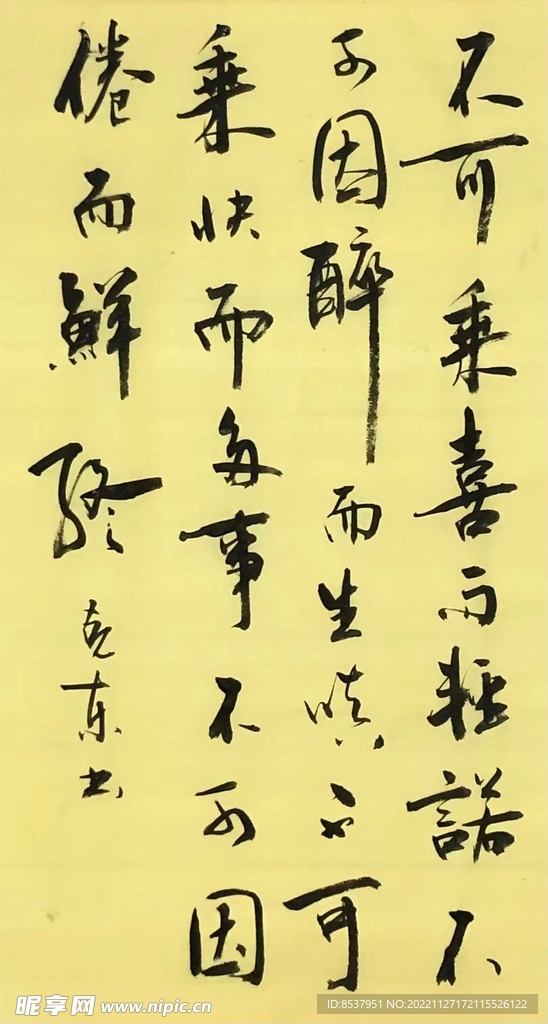 不可乘喜而轻諾不
可因醉而生嗔不可
乘快而多事不可因
倦而鮮終
克东书
昵享网 www.nipic.cn
ID:8537951 NO:20221127172115526122